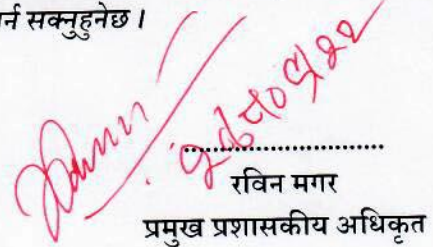 र्न सक्नुहुनेछ ।
रविन मगर
प्रमुख प्रशासकीय अधिकृत